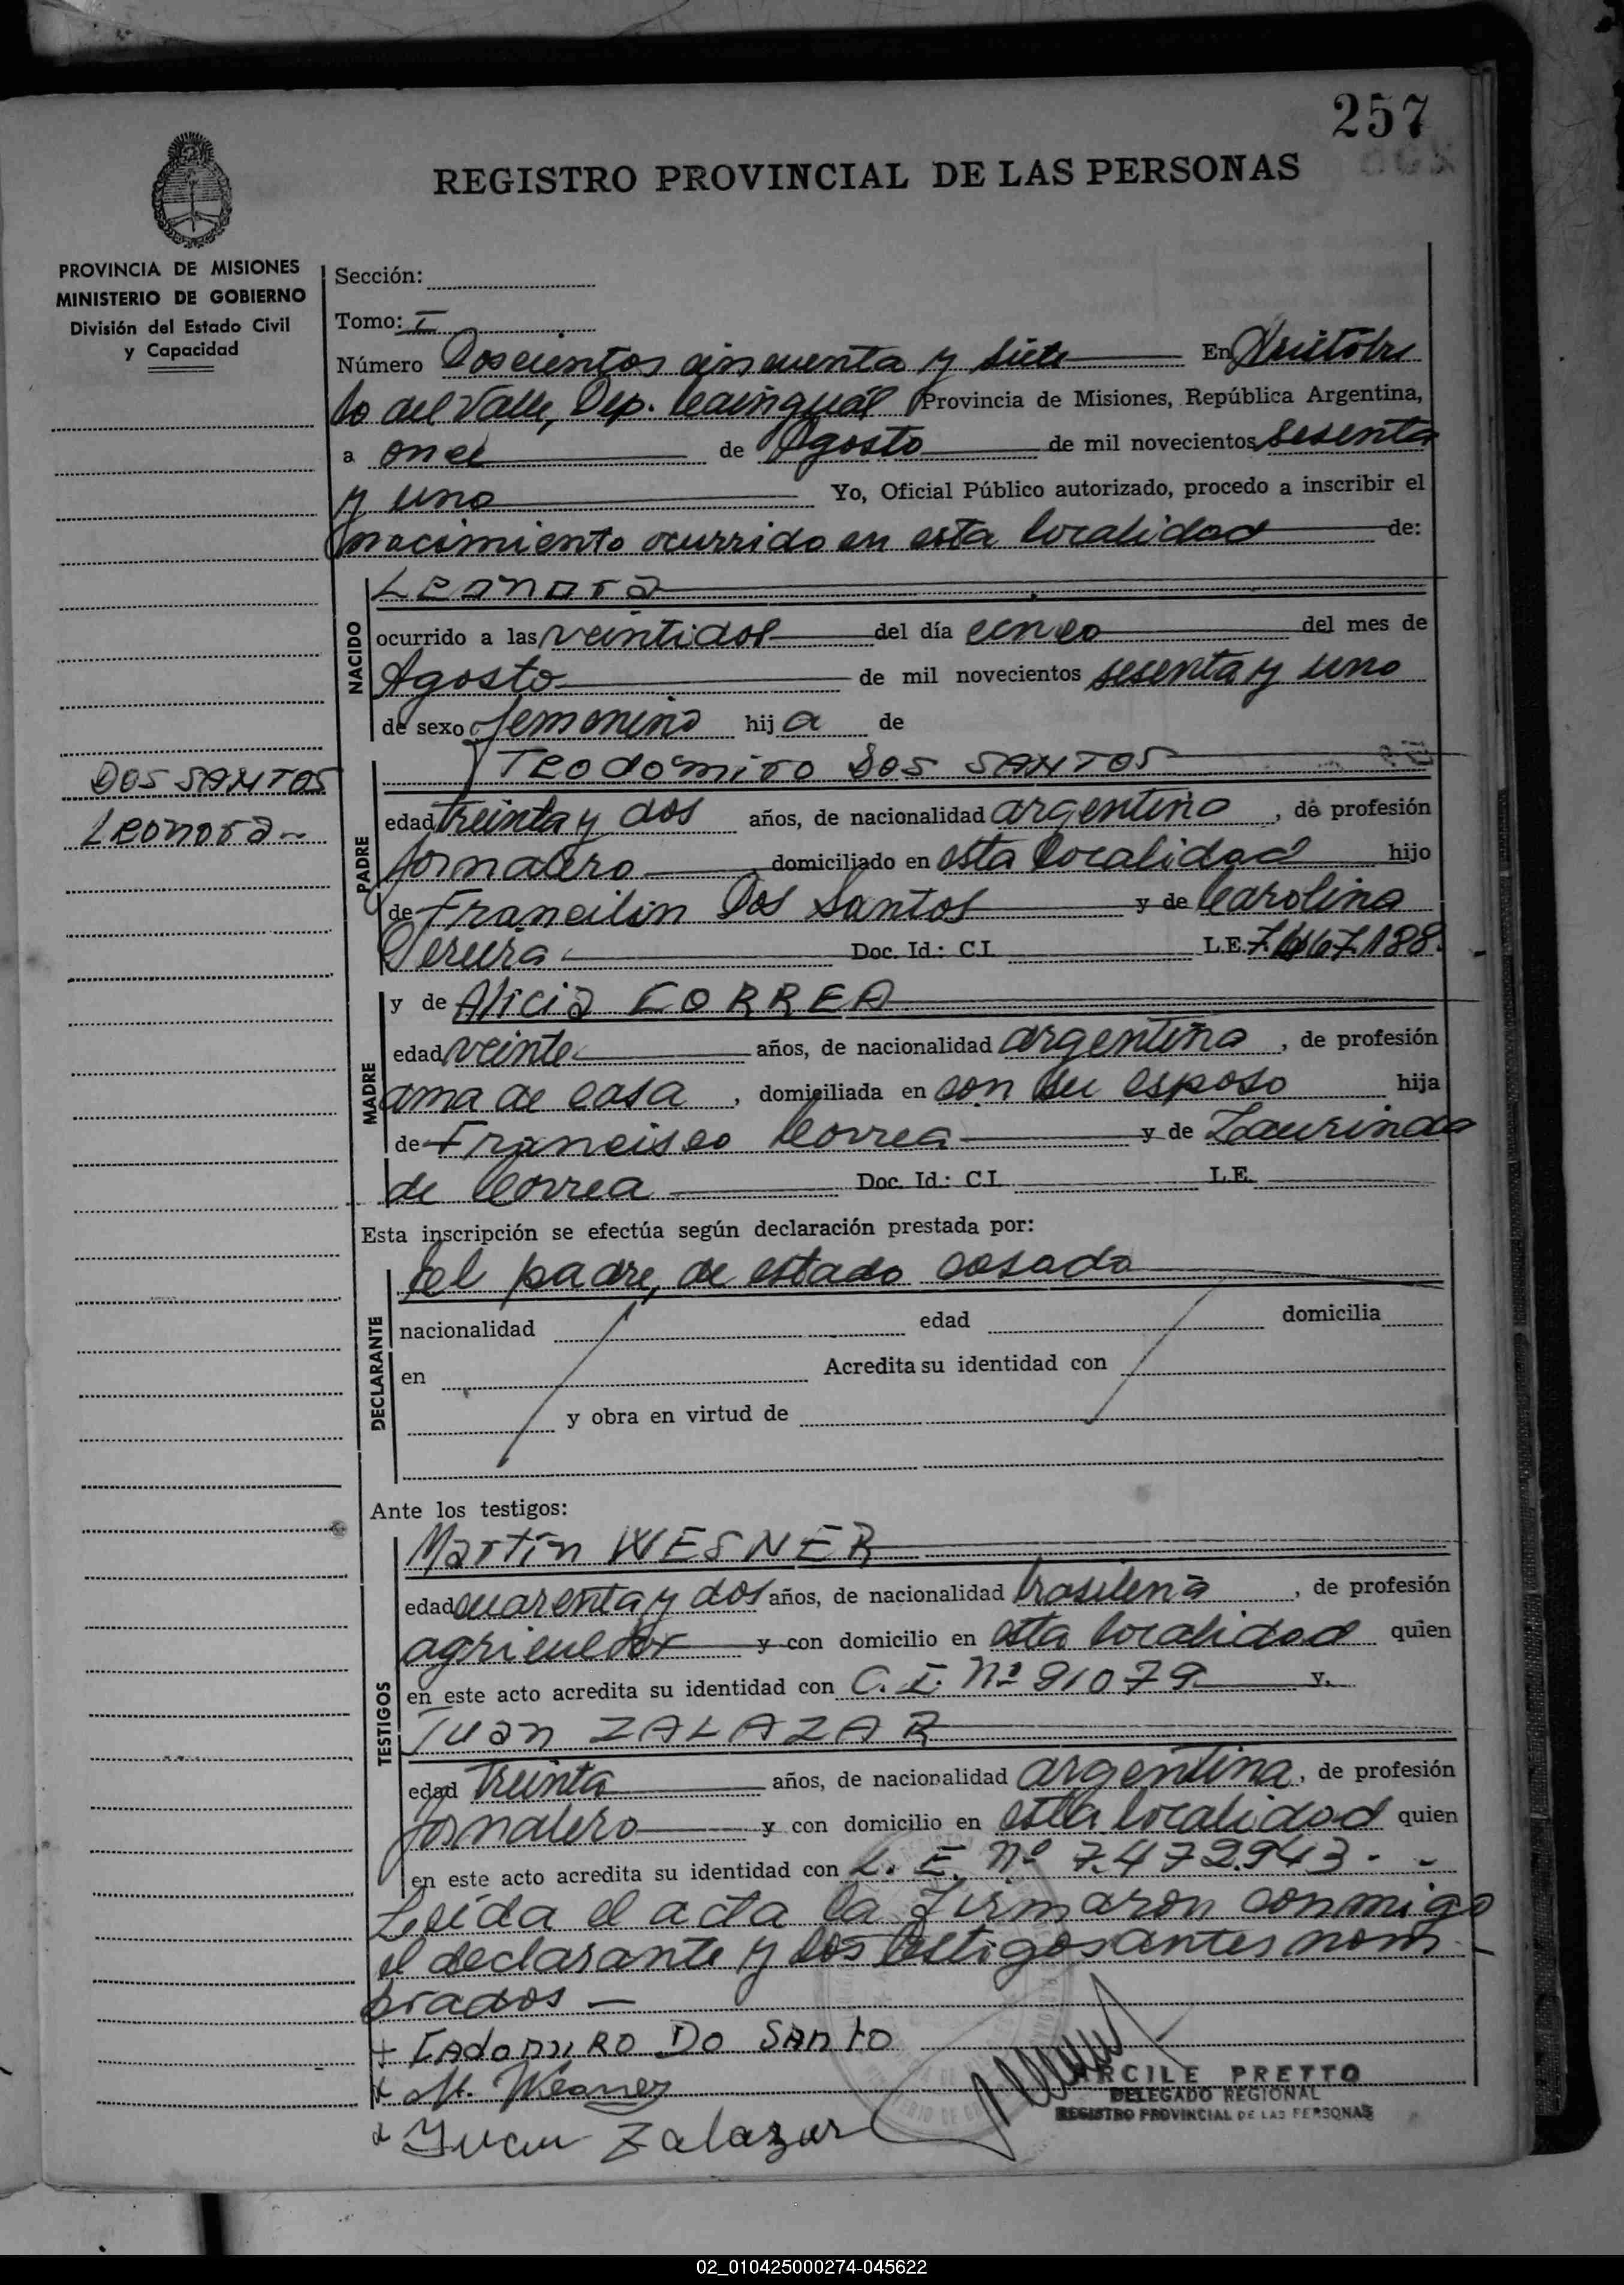 257
REGISTRO PROVINCIAL DE LAS PERSONAS
PROVINCIA DE MISIONES
MINISTERIO DE GOBIERNO
División del Estado Civil
y Capacidad
Sección:
Tomo: I
Número Doscientos cincuenta y siete En Aristóbu
lo del Valle, Dep. Cainguás Provincia de Misiones, República Argentina,
a once de Agosto de mil novecientos sesenta
y uno Yo, Oficial Público autorizado, procedo a inscribir el
nacimiento ocurrido en esta localidad de:
NACIDO
Leonora
ocurrido a las veintidos del día cinco del mes de
Agosto de mil novecientos sesenta y uno
de sexo femenino hija de
DOS SANTOS
Leonora
PADRE
Teodomiro Dos SANTOS
edad treinta y dos años, de nacionalidad argentina, de profesión
jornalero domiciliado en esta localidad hijo
de Francilin Dos Santos y de Carolina
Pereira Doc. Id.: C.I. L.E. 7.467.188.
MADRE
y de Alicia CORREA
edad veinte años, de nacionalidad argentina, de profesión
ama de casa, domiciliada en con su esposo hija
de Francisco Correa y de Laurinda
de Correa Doc. Id.: C.I. L.E.
Esta inscripción se efectúa según declaración prestada por:
DECLARANTE
el padre, de estado casado
nacionalidad edad domicilia
en Acredita su identidad con
y obra en virtud de
Ante los testigos:
TESTIGOS
Martín WESNER
edad cuarenta y dos años, de nacionalidad brasilena, de profesión
agricultor y con domicilio en esta localidad quien
en este acto acredita su identidad con C. I. Nº 91079 y.
Juan ZALAZAR
edad treinta años, de nacionalidad argentina, de profesión
jornalero y con domicilio en esta localidad quien
en este acto acredita su identidad con L. E. Nº 7.472.943.-
Leída el acta la firmaron conmigo
el declarante y los testigos antes nom-
brados -
DO SANTO
M. Wesner
Juan Zalazar
ARCILE PRETTO
DELEGADO REGIONAL
REGISTRO PROVINCIAL DE LAS PERSONAS
02_010425000274-045622